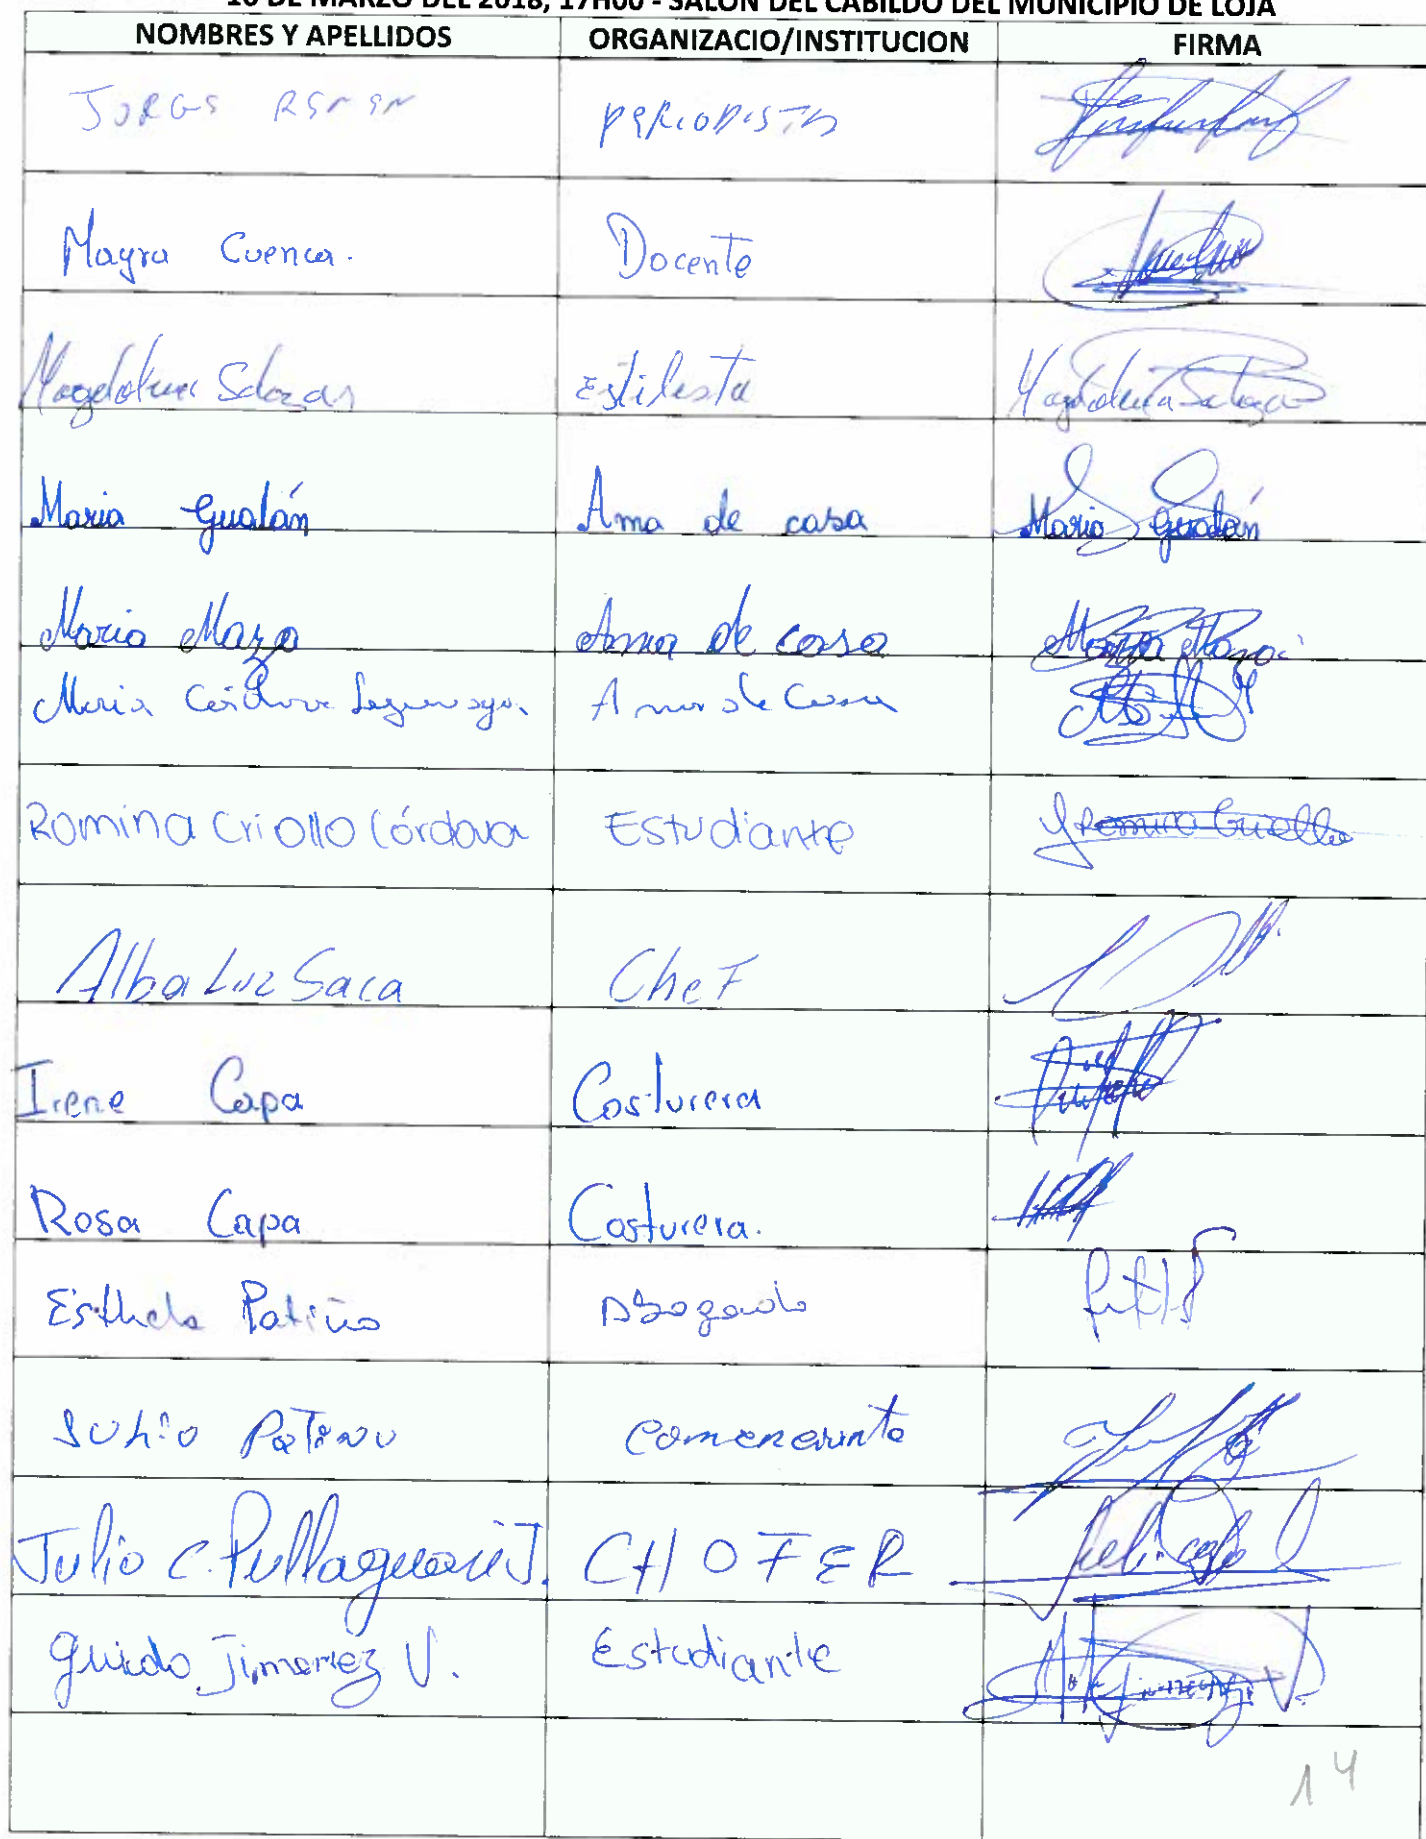 16 DE MARZO DEL 2018, 17H00 - SALON DEL CABILDO DEL MUNICIPIO DE LOJA
NOMBRES Y APELLIDOS ORGANIZACIO/INSTITUCION FIRMA
JORGE PERIODISTA
Mayra Cuenca. Docente
Magdalena Salazar Estilista Magdalena Salazar
Maria Gualán Ama de casa Maria Gualán
Maria Maza Ama de casa Maria Maza
Maria Córdova Ama de Casa
Romina Criollo Córdova Estudiante Romina Criollo
Alba Luz Saca Chef
Irene Capa Costurera
Rosa Capa Costurera.
Esthela Patiño Abogado
Julio Patiño Comerciante
Julio C. Pullaguari J. CHOFER
Guido Jimenez V. Estudiante
14